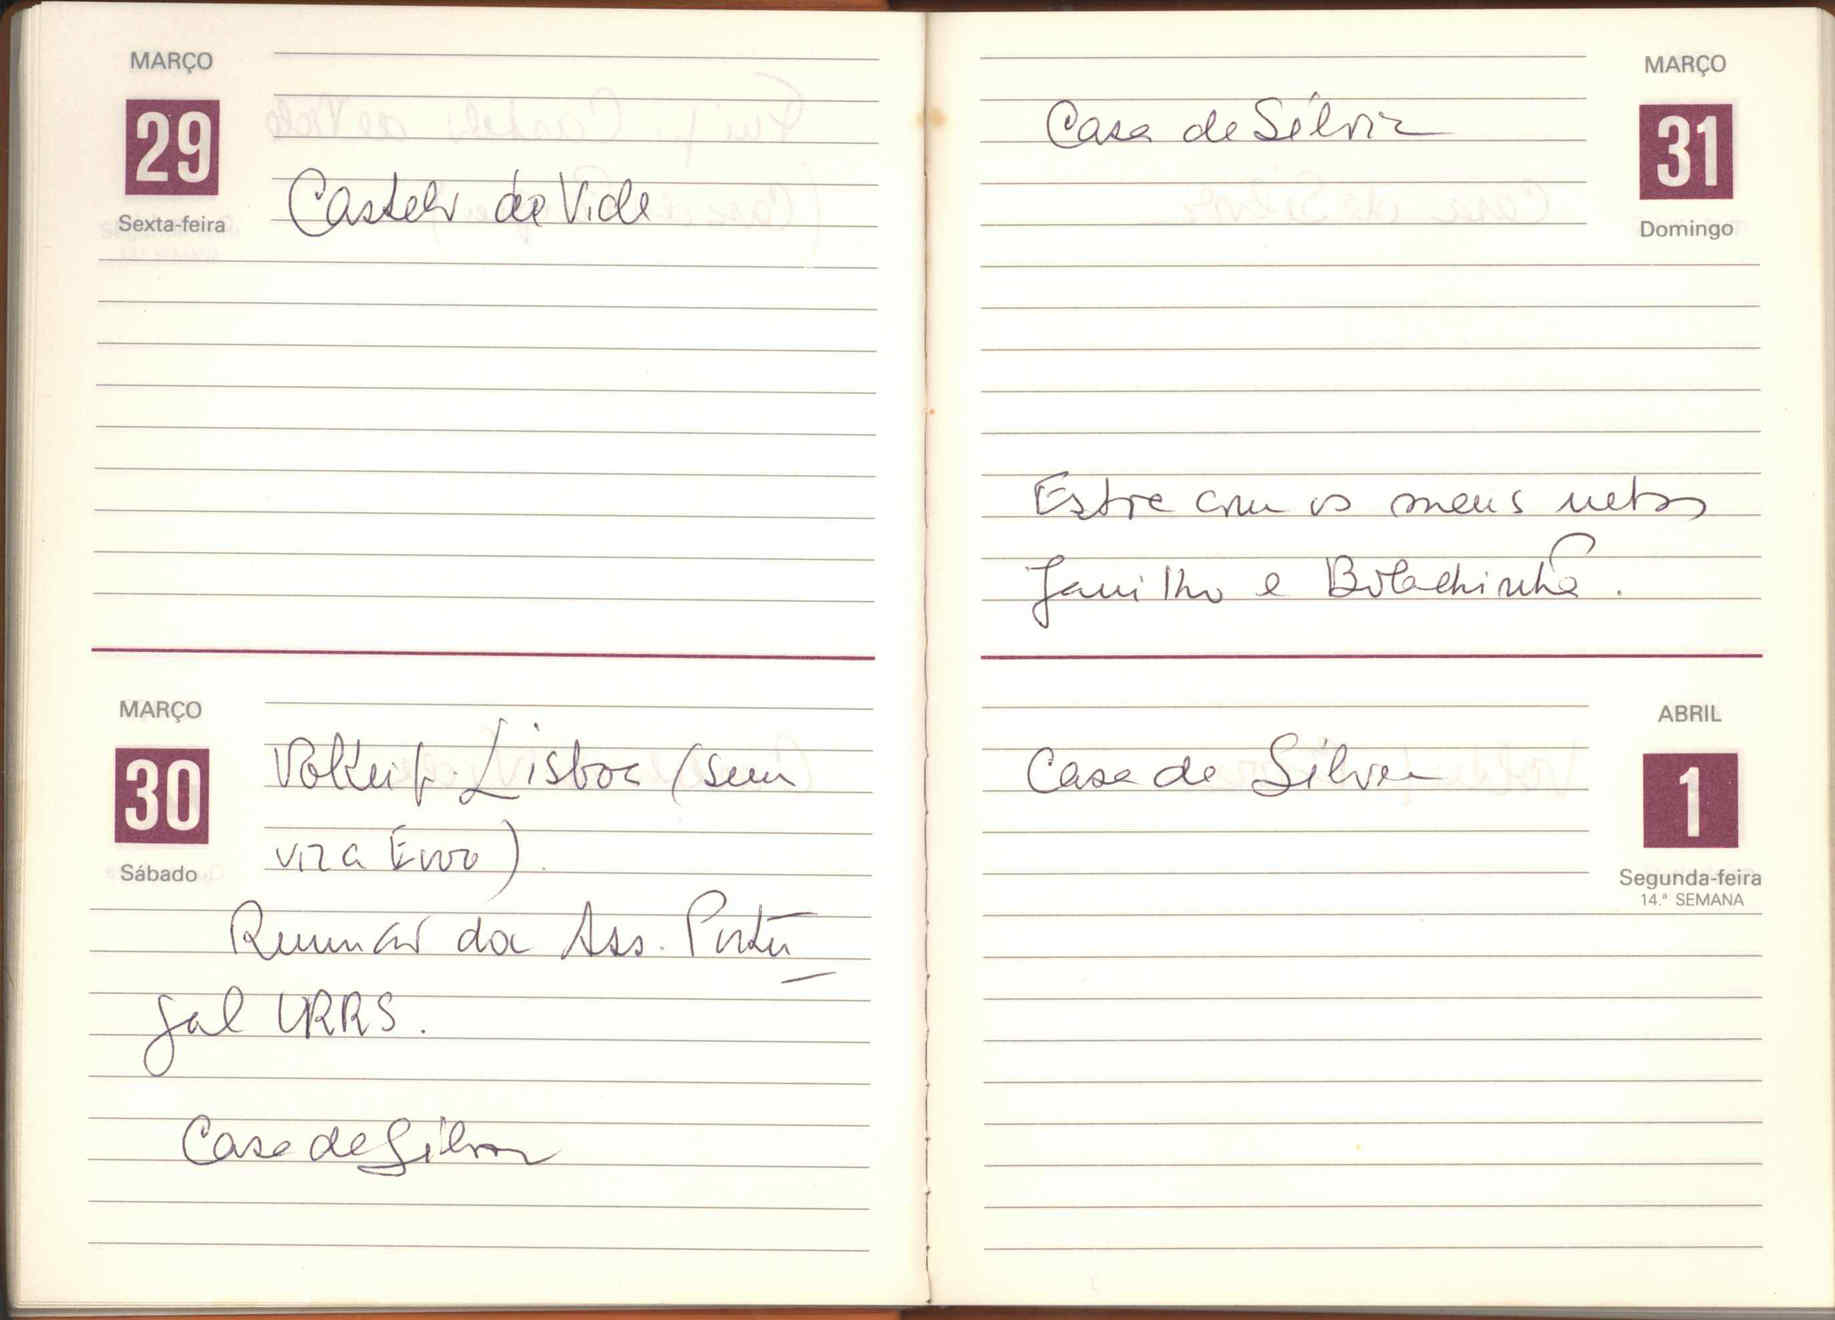 MARÇO
29
Sexta-feira
Castelo de Vide
MARÇO
30
Sábado
Voltei p. Lisboa (sem
vir a Évora).
Reunião da Ass. Portu
gal URRS.
Casa de Sílvia
MARÇO
31
Domingo
Casa de Sílvia
Estive com os meus netos
e Bolachinha.
ABRIL
1
Segunda-feira
14.ª SEMANA
Casa de Sílvia